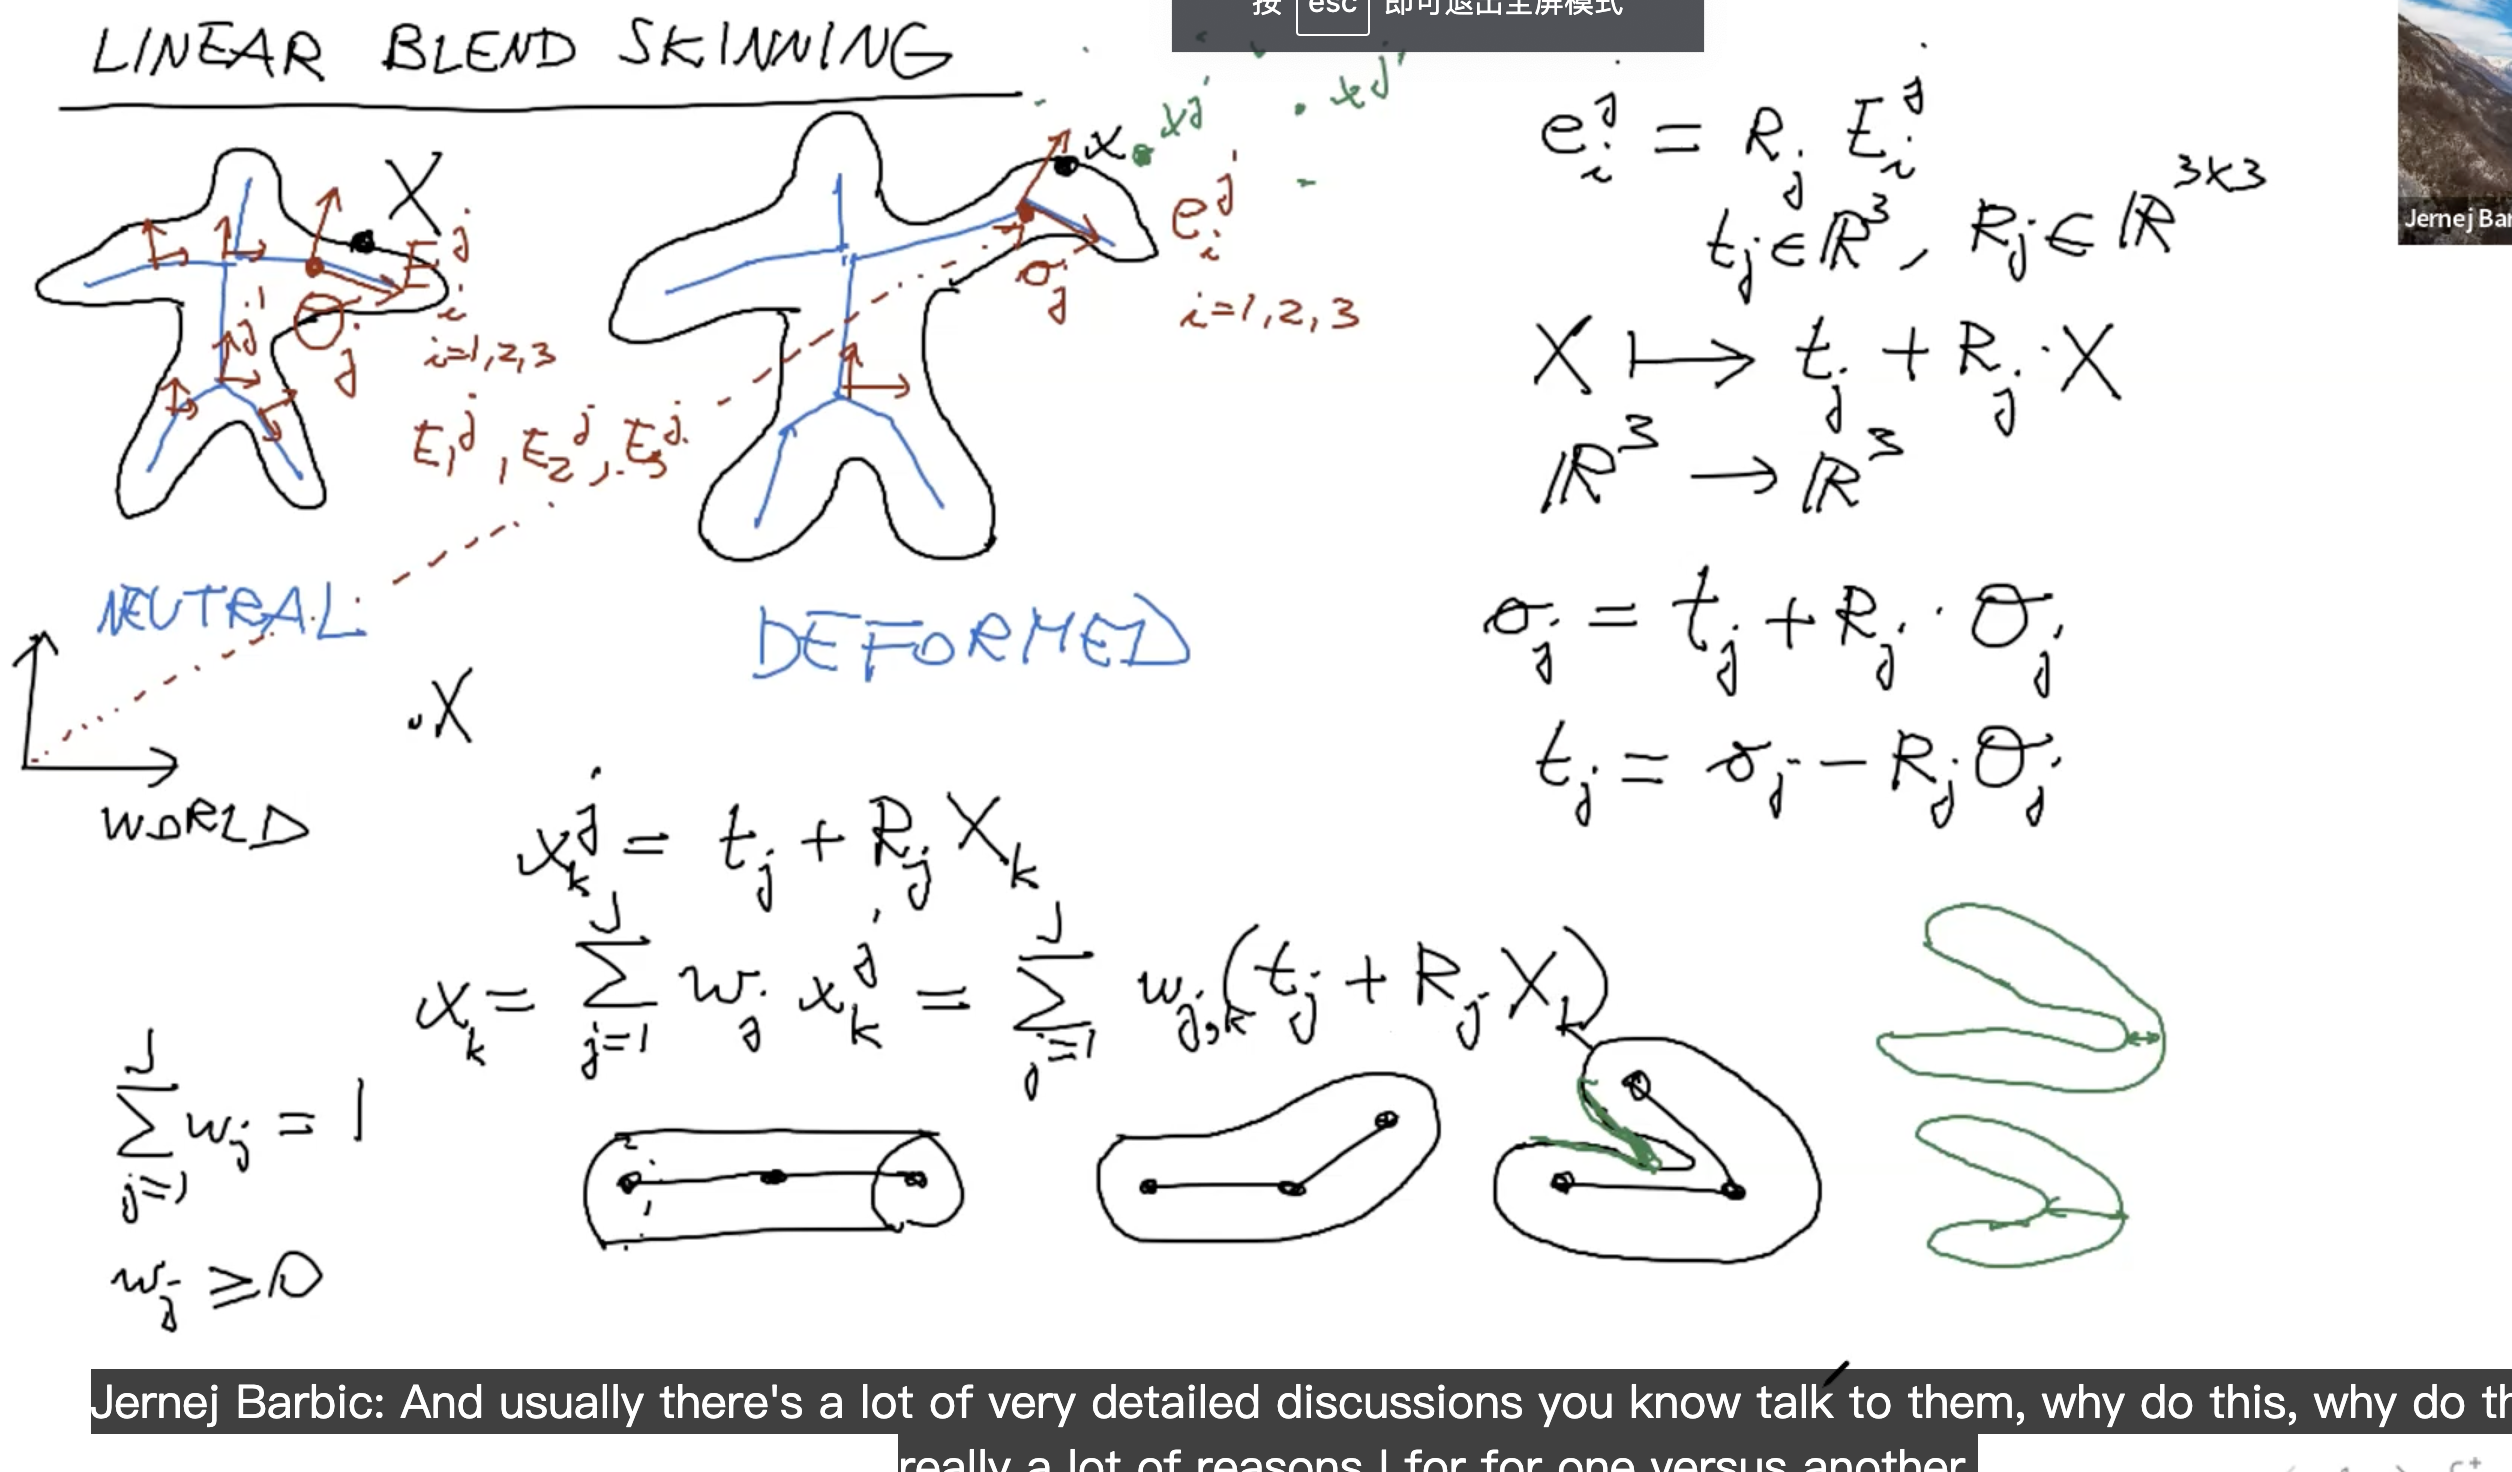 按 esc 即可退出全屏模式
LINEAR BLEND SKINNING
X
E_i^j
i=1,2,3
Θ_j
E_1^j, E_2^j, E_3^j
x
x^j
x^j
e_i^j
σ_j
i=1,2,3
NEUTRAL
DEFORMED
.X
WORLD
e_i^j = R_j E_i^j
t_j ∈ ℝ^3, R_j ∈ ℝ^{3x3}
X ↦ t_j + R_j · X
ℝ^3 → ℝ^3
σ_j = t_j + R_j · Θ_j
t_j = σ_j - R_j Θ_j
x_k^j = t_j + R_j X_k
x_k = Σ_{j=1}^J w_j x_k^j = Σ_{j=1}^J w_{j,k} (t_j + R_j X_k)
Σ_{j=1}^J w_j = 1
w_j ≥ 0
Jernej Bar
Jernej Barbic: And usually there's a lot of very detailed discussions you know talk to them, why do this, why do th
really a lot of reasons I for for one versus another